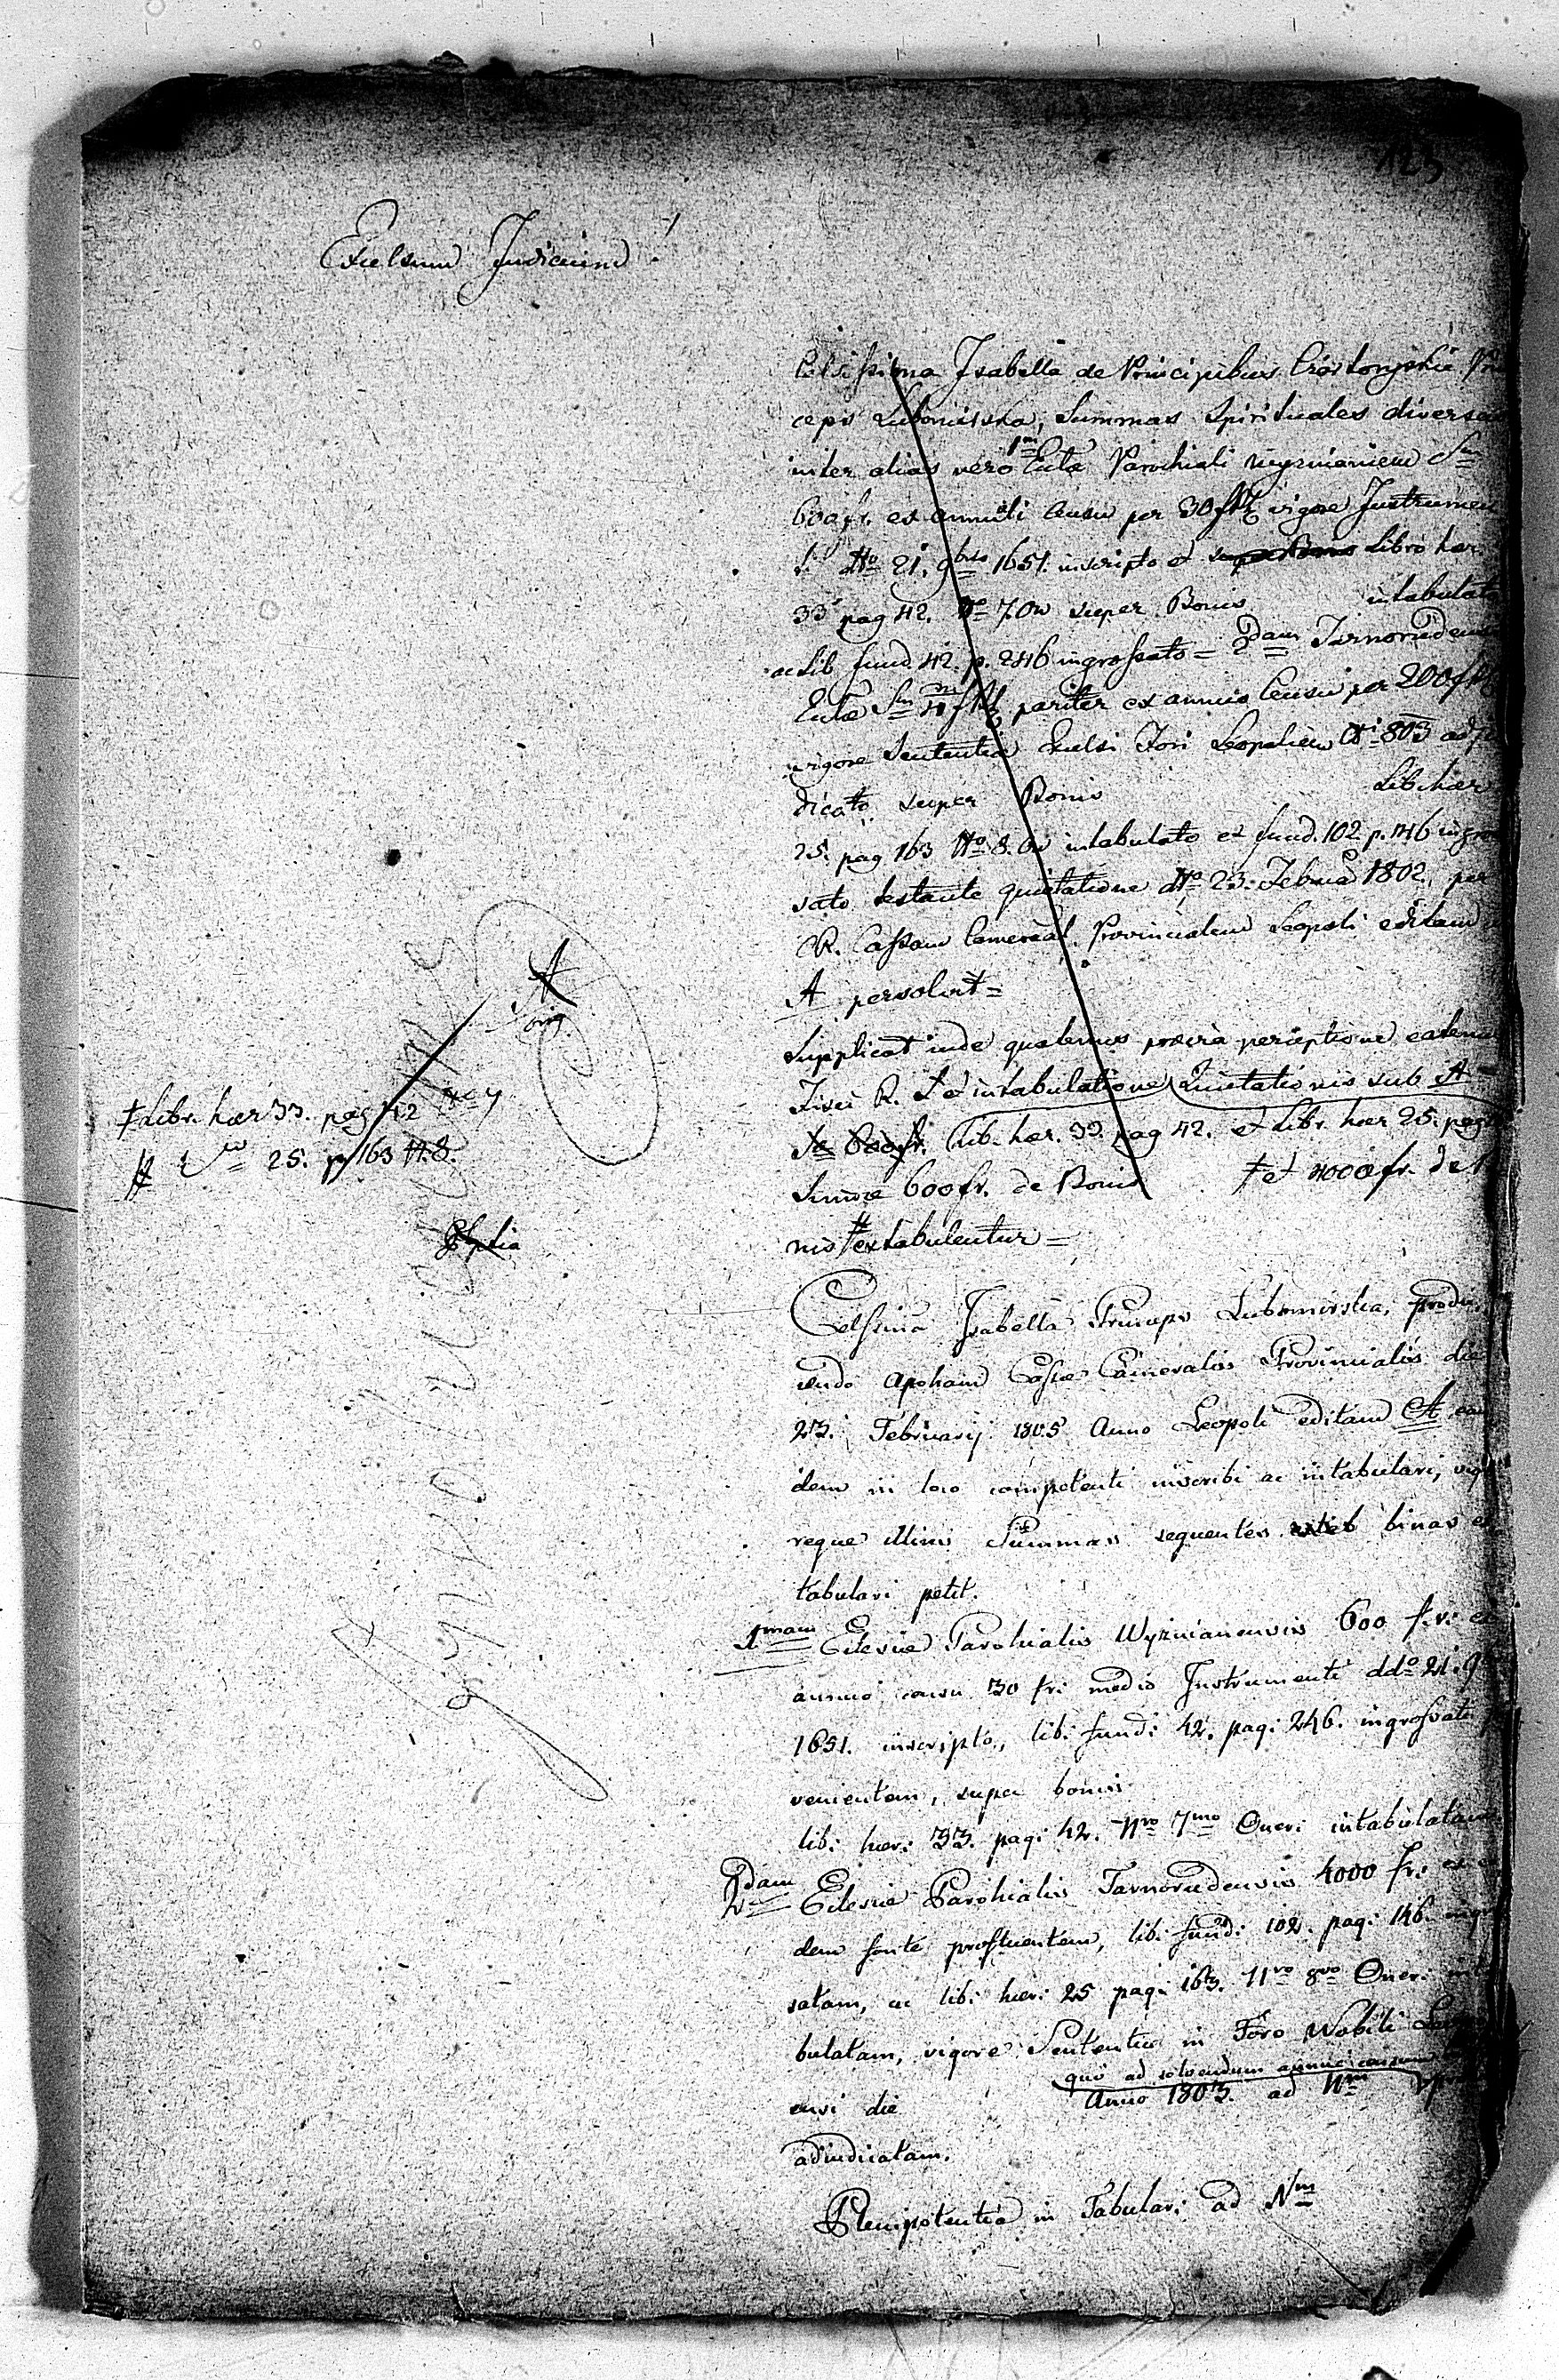 123
Excelsum Judicium!
Celsissima Isabella de Principibus Czartoryskie Prin
ceps Lubomirska, Summas Spirituales diversas
inter alias vero 1m Eccla Parochiali Wyznianien Sm
600 fr. ex annuali Censu per 30 fr vigore Instrumen
Ddto 21. 9bris 1651. inscripto et Libro haer.
33 pag 42. No 7. On super Bonis intabulato
ac Lib fund 42. p. 246 ingrossato = 2dam Tarnorudens
Eccla Sm 4m fr pariter ex annuo Censu per 200 fr
vigore Sententia Excelsi Fori Leopolien 803 adju
dicato super Bonis Lib haer
25. pag 163 No 8. On intabulato et fund. 102 p. 146 ingros
sato testante quietatione ddto 23. Februa 1802. per
C.R. Cassam Cameral. Provincialem Leopoli editam
A persolvit =
Supplicat inde quatenus praevia perceptione eatenus
Fisci R. et intabulatione Quietationis sub A
600 fr. Lib. haer. 33. pag 42. et Libr. haer 25. pag
Summae 600 fr. de Bonis † et 4000 fr. de
nis extabulentur =
A
orig
† Libr. haer 33. pag 42
25. p 163 N. 8.
Celssima Isabella Princeps Lubomirska, produ
cendo Apocham Cassae Cameralis Provincialis die
23. Februarij 1805 Anno Leopoli editam A, ean
dem in loco competenti inscribi ac intabulari, vigo
reque illius Summas sequentes binas ex
tabulari petit.
1mam Eclesiae Parohialis Wyznianensis 600 f.r. ex
annuo censu 30 fr: medio Instrumenti ddo 21. 9bris
1651. inscripto, lib: fund: 42. pag: 246. ingrossati pro
venientem, super bonis
lib: haer: 33. pag: 42. Nro 7mo Oner: intabulatam
2dam Eclesiae Parohialis Tarnorudensis 4000 fr: ex ea
dem fonte profluentem, lib: fund: 102. pag: 146. ingros
satam, ac lib: haer: 25 pag: 163. Nro 8vo Oner: inta
bulatam, vigore Sententiae in Foro Nobili Leopoli
quo ad solvendum annui censum
ensi die Anno 1803. ad Nm
adiudicatam.
Plenipotentia in Tabular: ad Nm